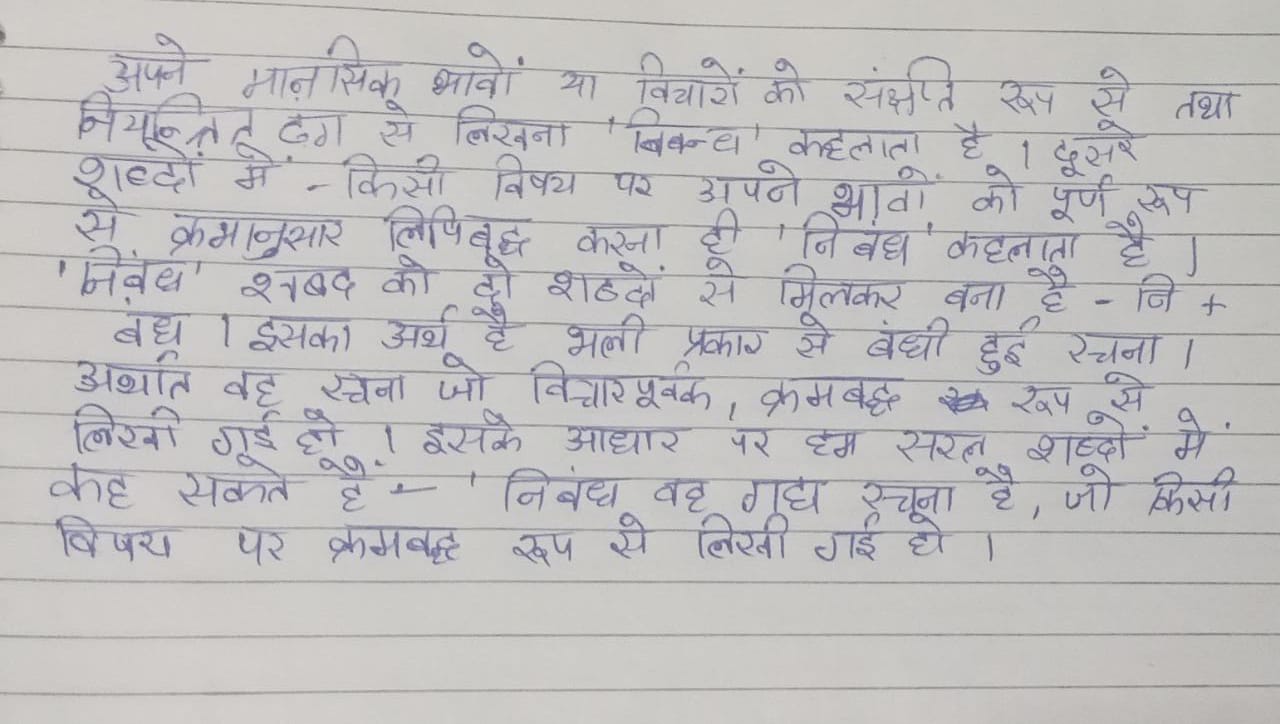 अपने मानसिक भावों या विचारों को संक्षप्ति रूप से तथा
नियन्त्रित ढंग से लिखना 'निबन्ध' कहलाता है । दूसरे
शब्दों में - किसी विषय पर अपने भावों को पूर्ण रूप
से क्रमानुसार लिपिबद्ध करना ही 'निबंध' कहलाता है ।
'निबंध' शबद को दो शब्दों से मिलकर बना है - नि +
बंध । इसका अर्थ है भली प्रकार से बंधी हुई रचना ।
अर्थात वह रचना जो विचारपूर्वक, क्रमबद्ध रूप से
लिखी गई हो । इसके आधार पर हम सरल शब्दों में
कह सकते हैं - 'निबंध वह गद्य रचना है, जो किसी
विषय पर क्रमबद्ध रूप से लिखी गई हो ।